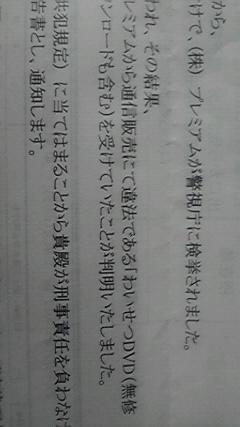 から、
けで、(株) プレミアムが警視庁に検挙されました。
われ、その結果、
レミアムから通信販売にて違法である「わいせつDVD(無修
ンロードも含む)を受けていたことが判明いたしました。
共犯規定) に当てはまることから貴殿が刑事責任を負わなけ
告書とし、通知します。